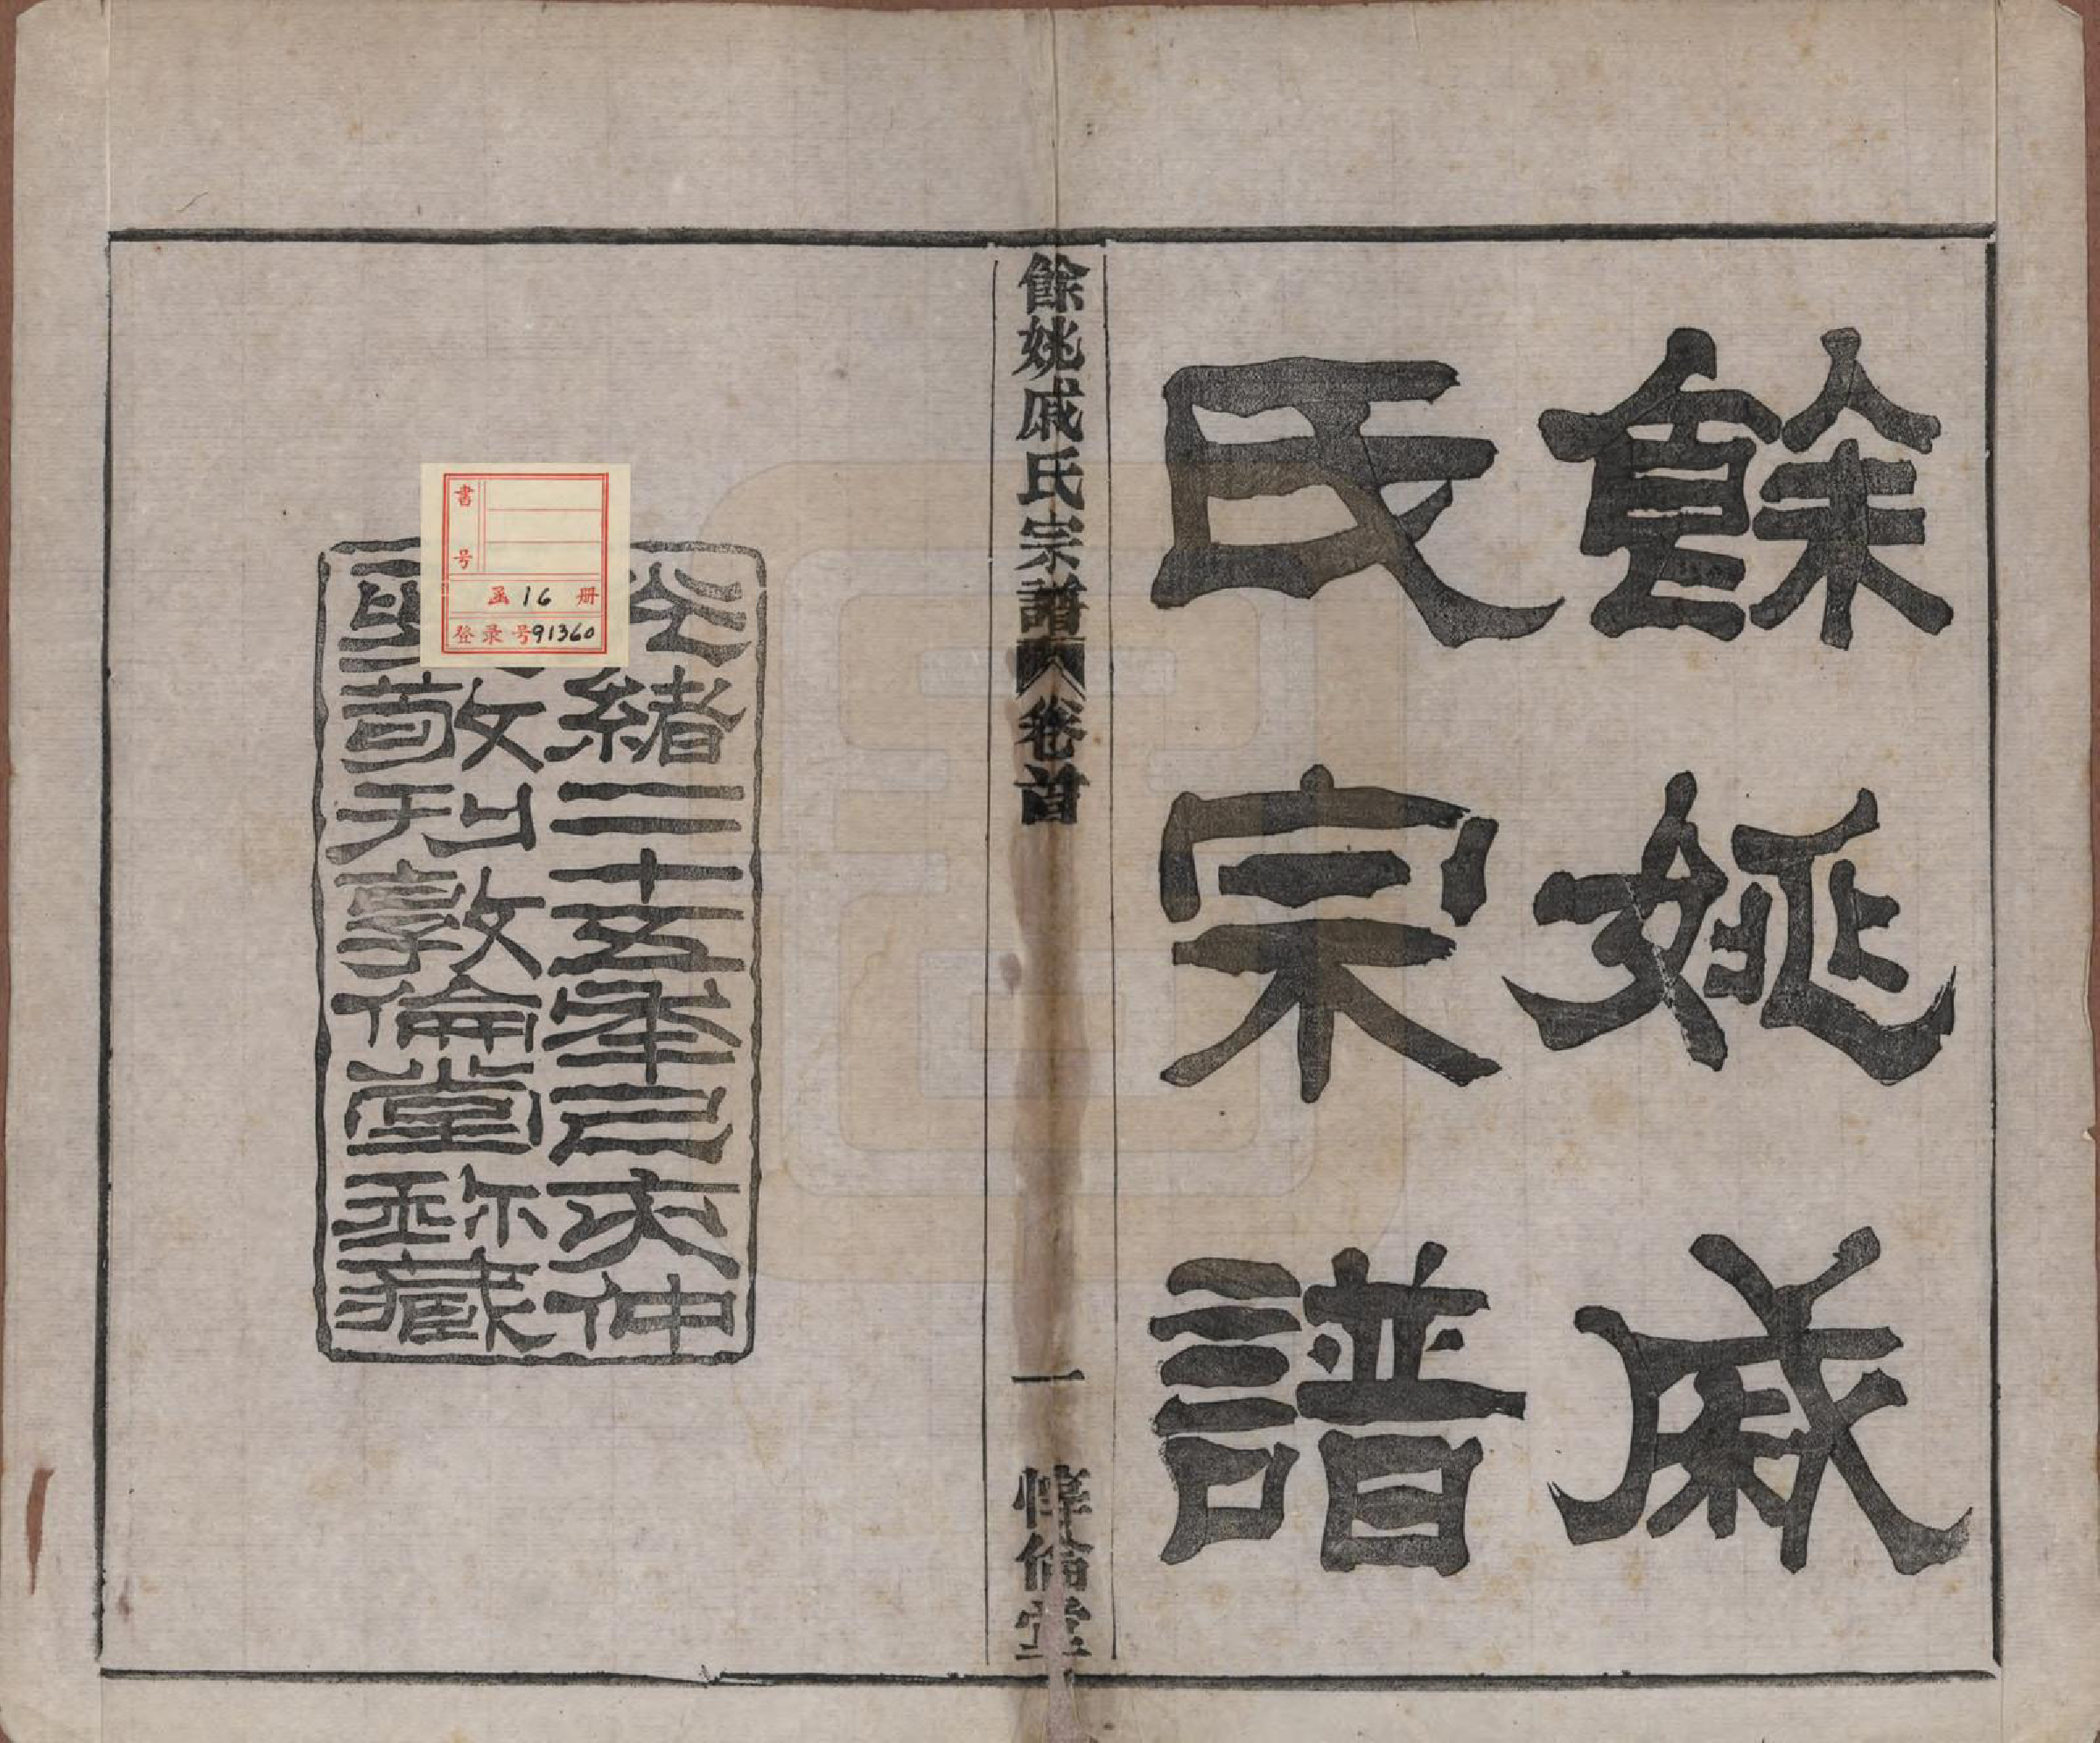 餘姚戚
氏宗譜
餘姚戚氏宗譜 卷首 一 惇倫堂
光緒二十五年己亥仲
敬刊敦倫堂珍藏
書号
函 16 册
登录号91360